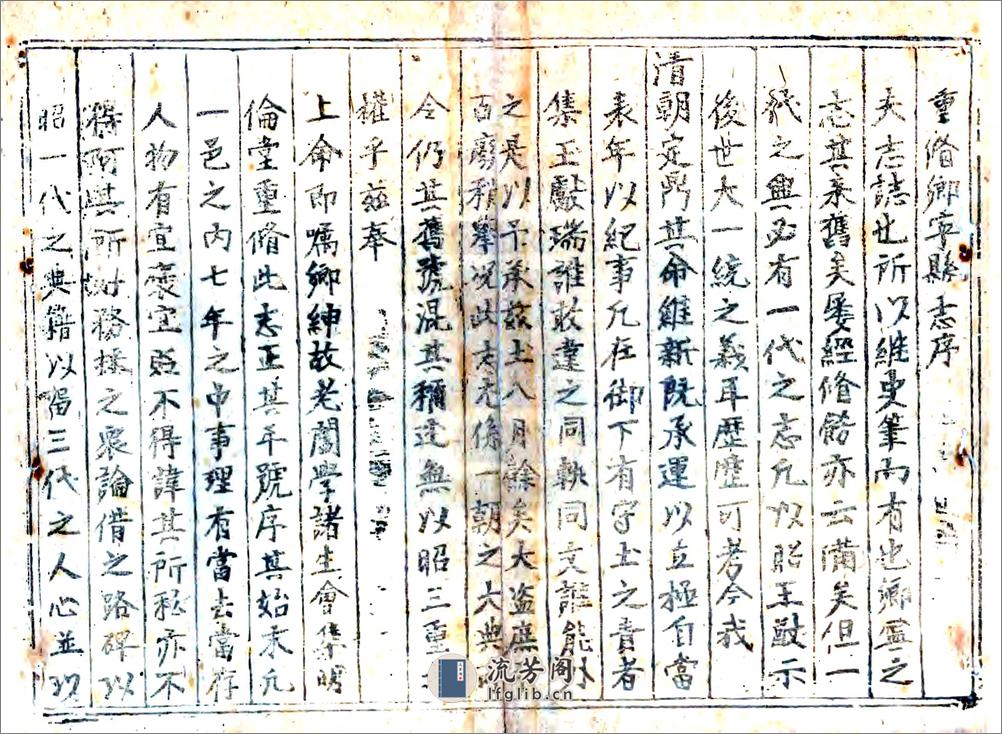 重脩鄉寧縣志序
夫志誌也所以維史筆而有也鄉寧之
志其來舊矣屢經脩飭亦云備矣但一
代之興必有一代之志凡以昭王猷示
後世大一統之義耳歷歷可考今我
清朝定鼎其命維新既承運以立極自當
表年以紀事凡在御下有守土之責者
集玉獻瑞誰敢違之同軌同文誰能外
之是以予承茲土八月餘矣大盜
百廢稍舉況此志尤係一朝之大典
今仍其舊號混其稱述無以昭三重
權乎茲奉
上命即囑鄉紳故老闔學諸生會集明
倫堂重脩此志正其年號序其始末凡
一邑之內七年之中事理有當去當存
人物有宜褒宜貶不得諱其所私亦不
得阿其所好務採之眾論借之路碑以
昭一代之典籍以留三代之人心並以
流芳閣
lfglib.cn